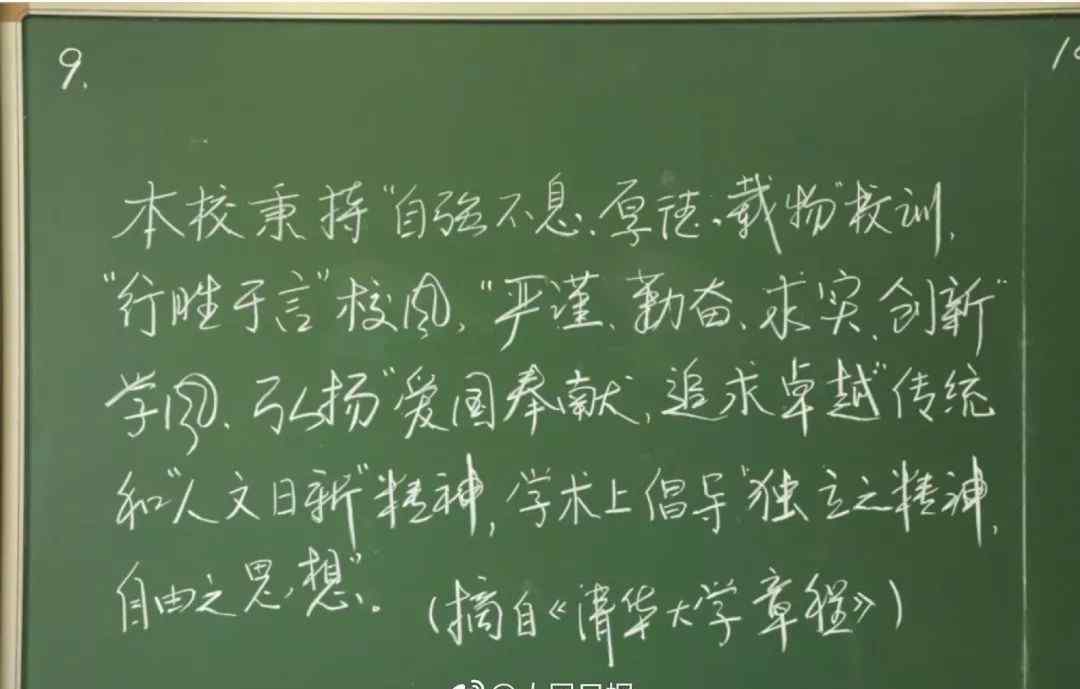 9.
本校秉持“自强不息、厚德、载物”校训,
“行胜于言”校风,“严谨、勤奋、求实、创新”
学风、弘扬“爱国奉献,追求卓越”传统
和“人文日新”精神,学术上倡导“独立之精神,
自由之思想”。
(摘自《清华大学章程》)